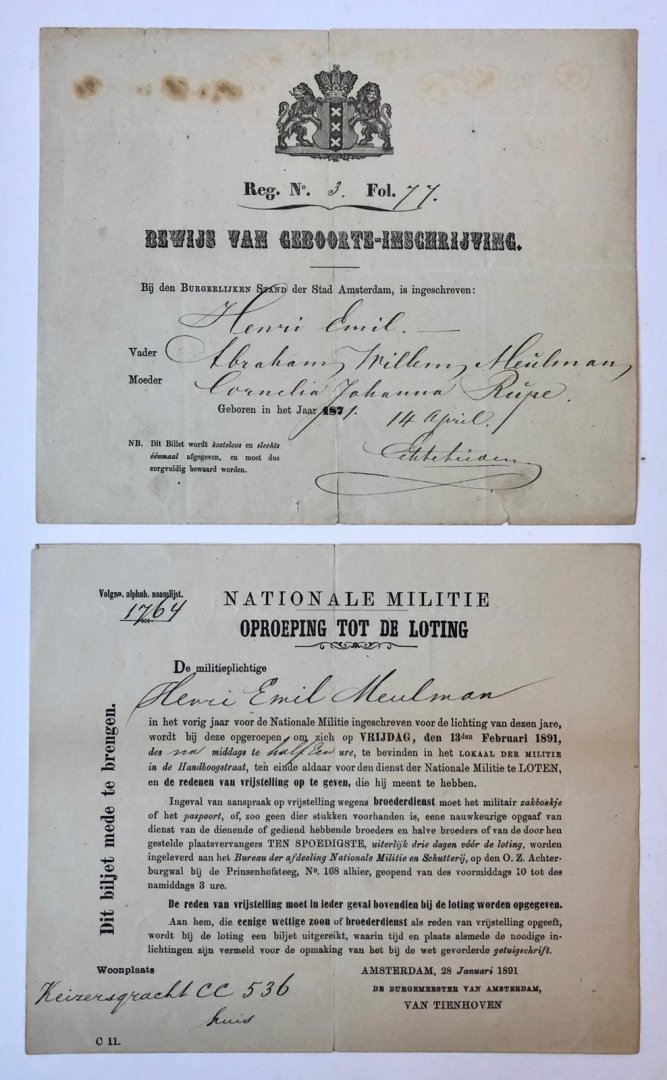 Reg. No. 3. Fol. 77.
BEWIJS VAN GEBOORTE-INSCHRIJVING.
Bij den BURGERLIJKEN STAND der Stad Amsterdam, is ingeschreven:
Henri Emil. —
Vader Abraham Willem Meulman,
Moeder Cornelia Johanna Rupe.
Geboren in het Jaar 1871. 14 April.
NB. Dit Billet wordt kosteloos en slechts
éénmaal afgegeven, en moet dus
zorgvuldig bewaard worden.
Volgno. alphab. naamlijst.
1764
NATIONALE MILITIE
OPROEPING TOT DE LOTING
De militieplichtige
Henri Emil Meulman
in het vorig jaar voor de Nationale Militie ingeschreven voor de lichting van dezen jare,
wordt bij deze opgeroepen om zich op VRIJDAG, den 13den Februari 1891,
des na middags te half Een ure, te bevinden in het LOKAAL DER MILITIE
in de Handboogstraat, ten einde aldaar voor deu dienst der Nationale Militie te LOTEN,
en de redenen van vrijstelling op te geven, die hij meent te hebben.
Ingeval van aanspraak op vrijstelling wegens broederdienst moet het militair zakboekje
of het paspoort, of, zoo geen dier stukken voorhanden is, eene nauwkeurige opgaaf van
dienst van de dienende of gediend hebbende broeders en halve broeders of van de door hen
gestelde plaatsvervangers TEN SPOEDIGSTE, uiterlijk drie dagen vóór de loting, worden
ingeleverd aan het Bureau der afdeeling Nationale Militie en Schutterij, op den O. Z. Achter-
burgwal bij de Prinsenhofsteeg, No. 168 alhier, geopend van des voormiddags 10 tot des
namiddags 3 ure.
De reden van vrijstelling moet in ieder geval bovendien bij de loting worden opgegeven.
Aan hem, die eenige wettige zoon of broederdienst als reden van vrijstelling opgeeft,
wordt bij de loting een biljet uitgereikt, waarin tijd en plaats alsmede de noodige in-
lichtingen zijn vermeld voor de opmaking van het bij de wet gevorderde getuigschrift.
Dit biljet mede te brengen.
Woonplaats
Keizersgracht CC 536
huis
AMSTERDAM, 28 Januari 1891
DE BURGEMEESTER VAN AMSTERDAM,
VAN TIENHOVEN
C 11.